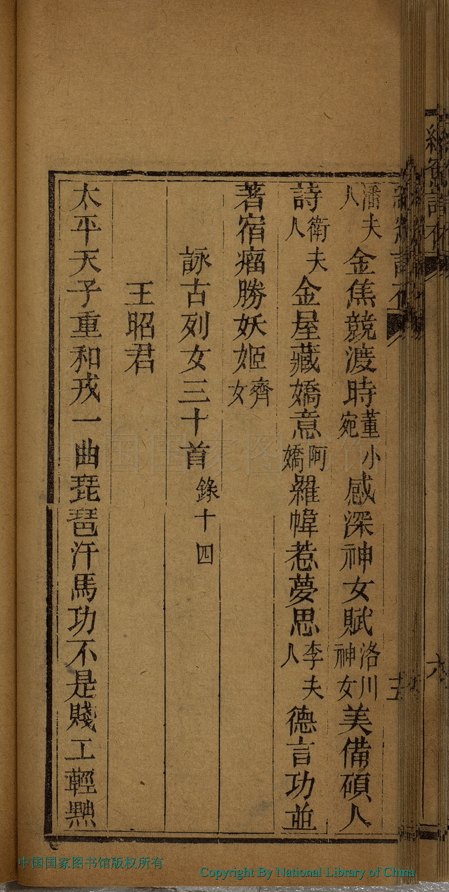 潘夫人金焦競渡時董小宛感深神女賦洛川神女美備碩人
詩衛夫人金屋藏嬌意阿嬌羅幃惹夢思李夫人德言功並
著宿瘤勝妖姬齊女
詠古列女三十首錄十四
王昭君
太平天子重和戎一曲琵琶汗馬功不是賤工輕點
中国国家图书馆版权所有
Copyright By National Library of China